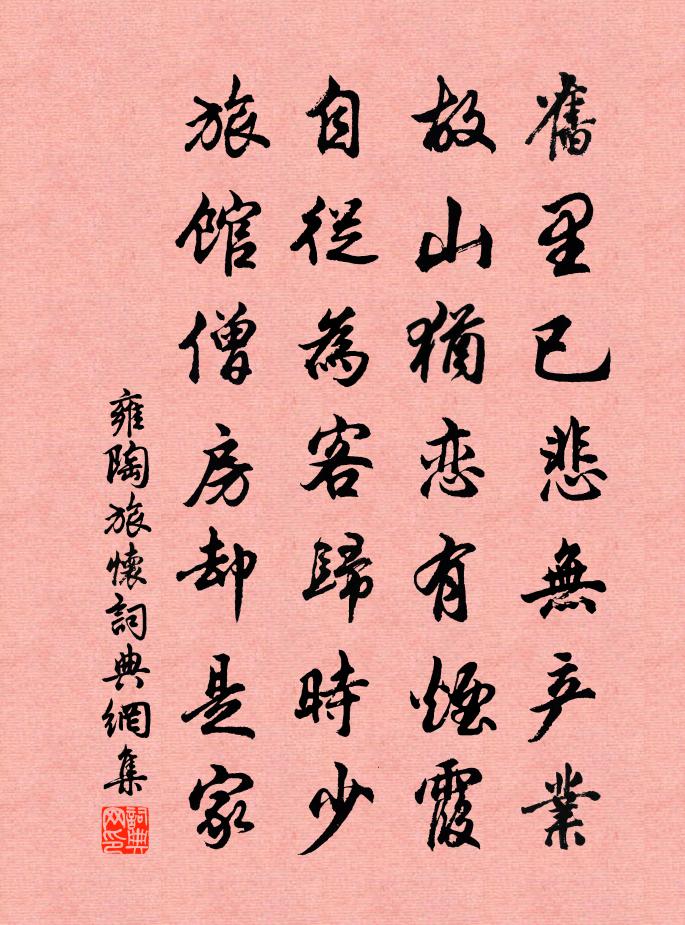 舊里已悲無产業
故山猶恋有煙霞
自從為客歸時少
旅館僧房却是家
雍陶旅懷詞典網集
詞典
网印